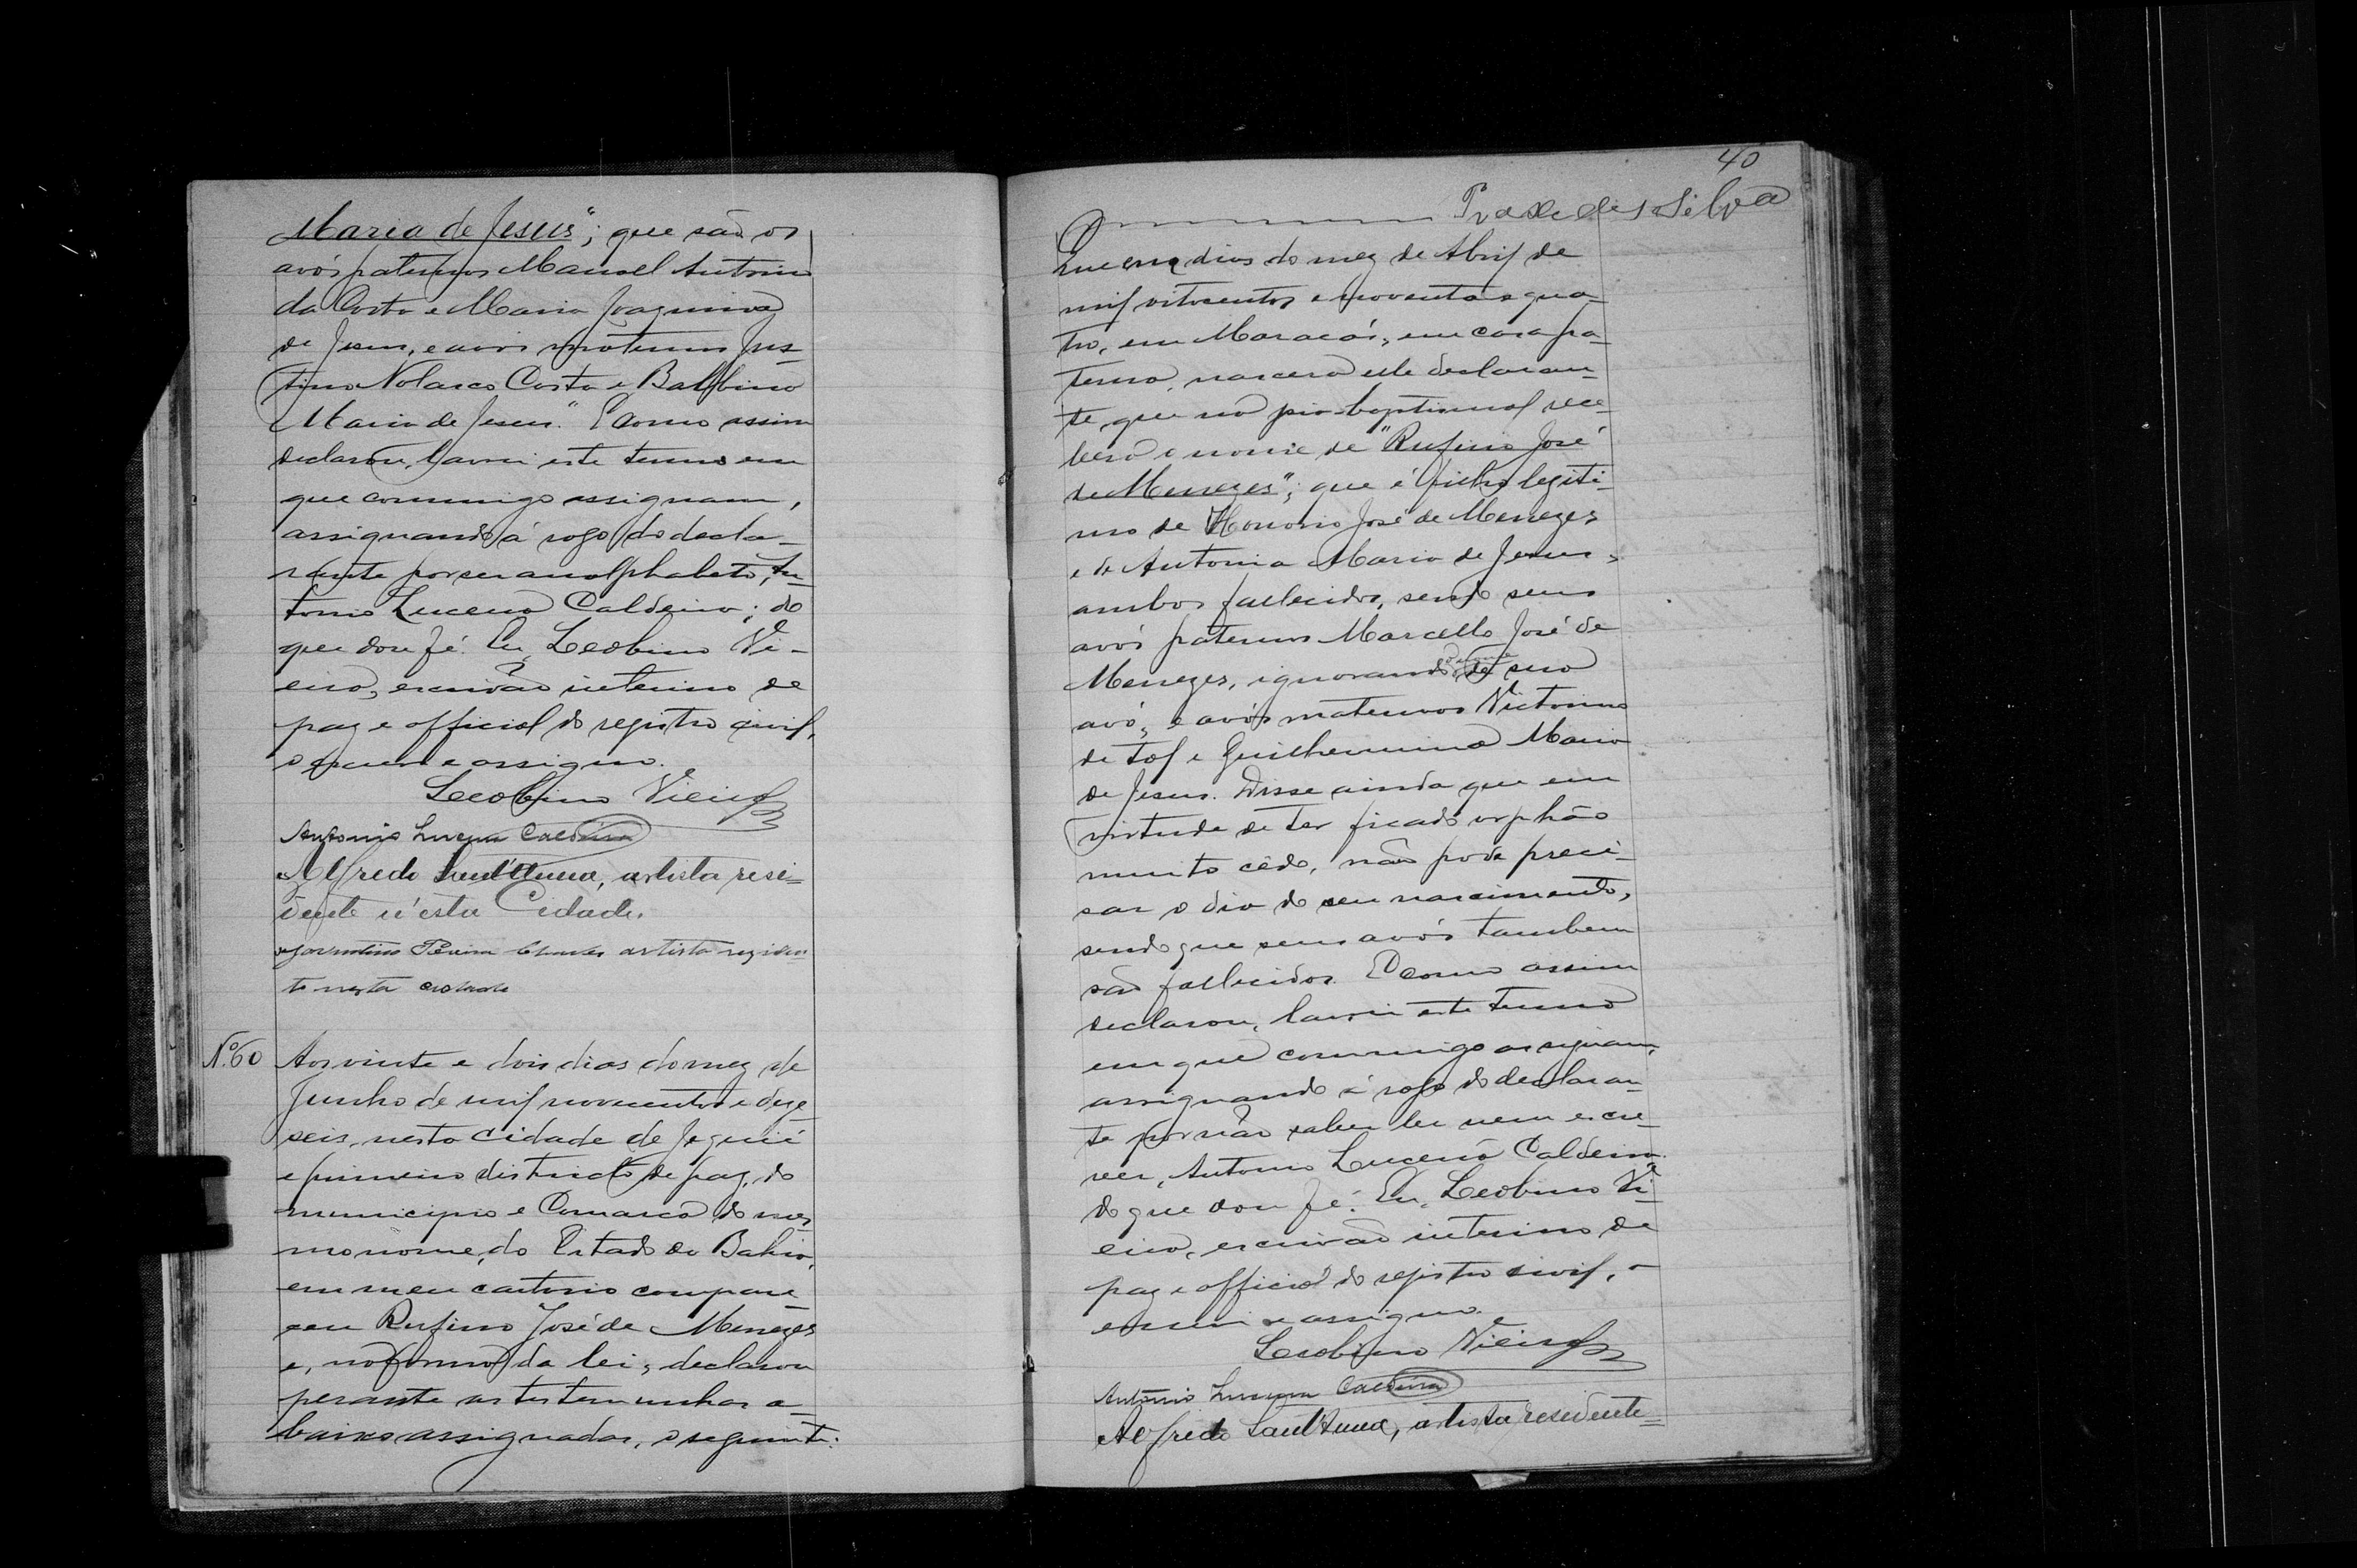 Maria de Jesus"; que são os
avós paternos Manoel Antonio
da Costa e Maria Joaquina
de Jesus, e avós maternos Jus-
tino Nolasco Costa e Balbina
Maria de Jesus." E como assim
declarou, lavrei este termo em
que commigo assignam,
assignando á rogo do decla-
rante por ser analphabeto, An-
tonio Lucena Caldeira; do
que dou fé. Eu, Leobino Vi-
eira, escrivão interino de
paz e official do registro civil,
o escrevi e assigno.
Leobino Vieira
Antonio Lucena Caldeira
Alfredo Sant'Anna, artista resi-
dente n'esta Cidade.
Pereira artista residen-
te nesta cidade
Nº 60
Aos vinte e dois dias do mez de
Junho de mil novecentos e deze-
seis, nesta cidade de Jequié
e primeiro districto de paz, do
municipio e Comarca do mes-
mo nome, do Estado da Bahia,
em meu cartorio compare-
ceu Rufino José de Menezes
e, na forma da lei, declarou
perante as testemunhas a-
baixo assignadas, o seguinte:
40
Praxedes Silva
Que em dias do mez de Abril de
mil oitocentos e noventa e qua-
tro, em Maracás, em casa pa-
terna, nascera elle declaran-
te, que na pia baptismal rece-
bera o nome de "Rufino José
de Menezes"; que é filho legiti-
mo de Honorio José de Menezes
e de Antonia Maria de Jesus,
ambos fallecidos, sendo seus
avós paternos Marcello José de
Menezes, ignorando o nome de sua
avó, e avós maternos Victorino
de tal e Guilhermina Maria
de Jesus. Disse ainda que em
virtude de ter ficado orphão
muito cêdo, não pode preci-
sar o dia do seu nascimento,
sendo que seus avós tambem
são fallecidos. E como assim
declarou, lavrei este termo
em que commigo assignam,
assignando á rogo do declaran-
te por não saber ler nem escre-
ver, Antonio Lucena Caldeira
do que dou fé. Eu, Leobino Vi-
eira, escrivão interino de
paz e official do registro civil, o
escrevi e assigno.
Leobino Vieira
Antonio Lucena Caldeira
Alfredo Sant'Anna, artista residente